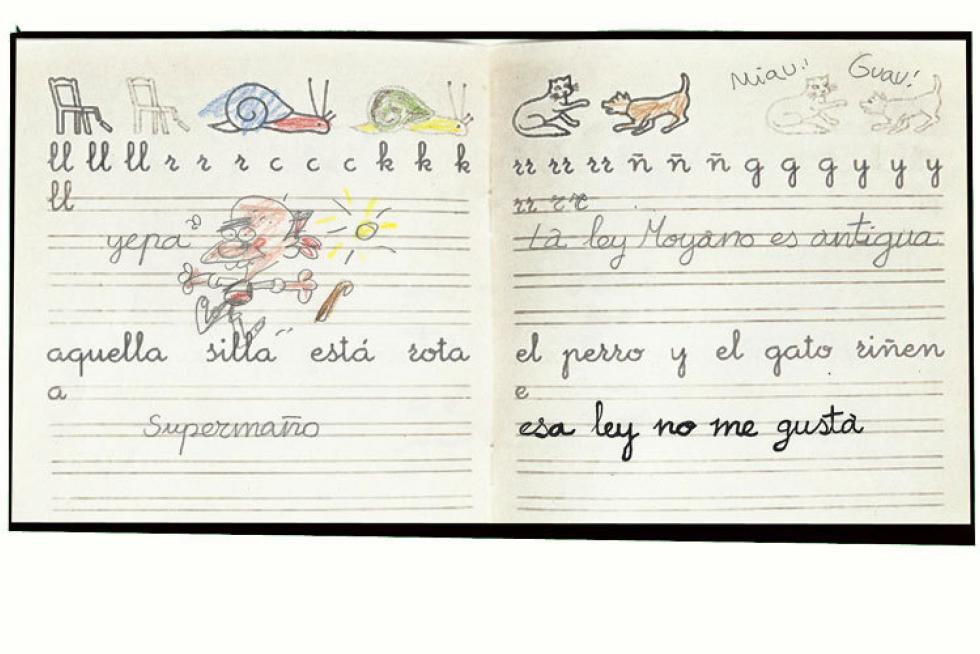 ll ll ll r r r c c c k k k
ll
yepa
aquella silla está rota
a
Supermaño
Miau! Guau!
rr rr rr ñ ñ ñ g g g y y y
rr rr
La ley Moyano es antigua.
el perro y el gato riñen
e
esa ley no me gusta